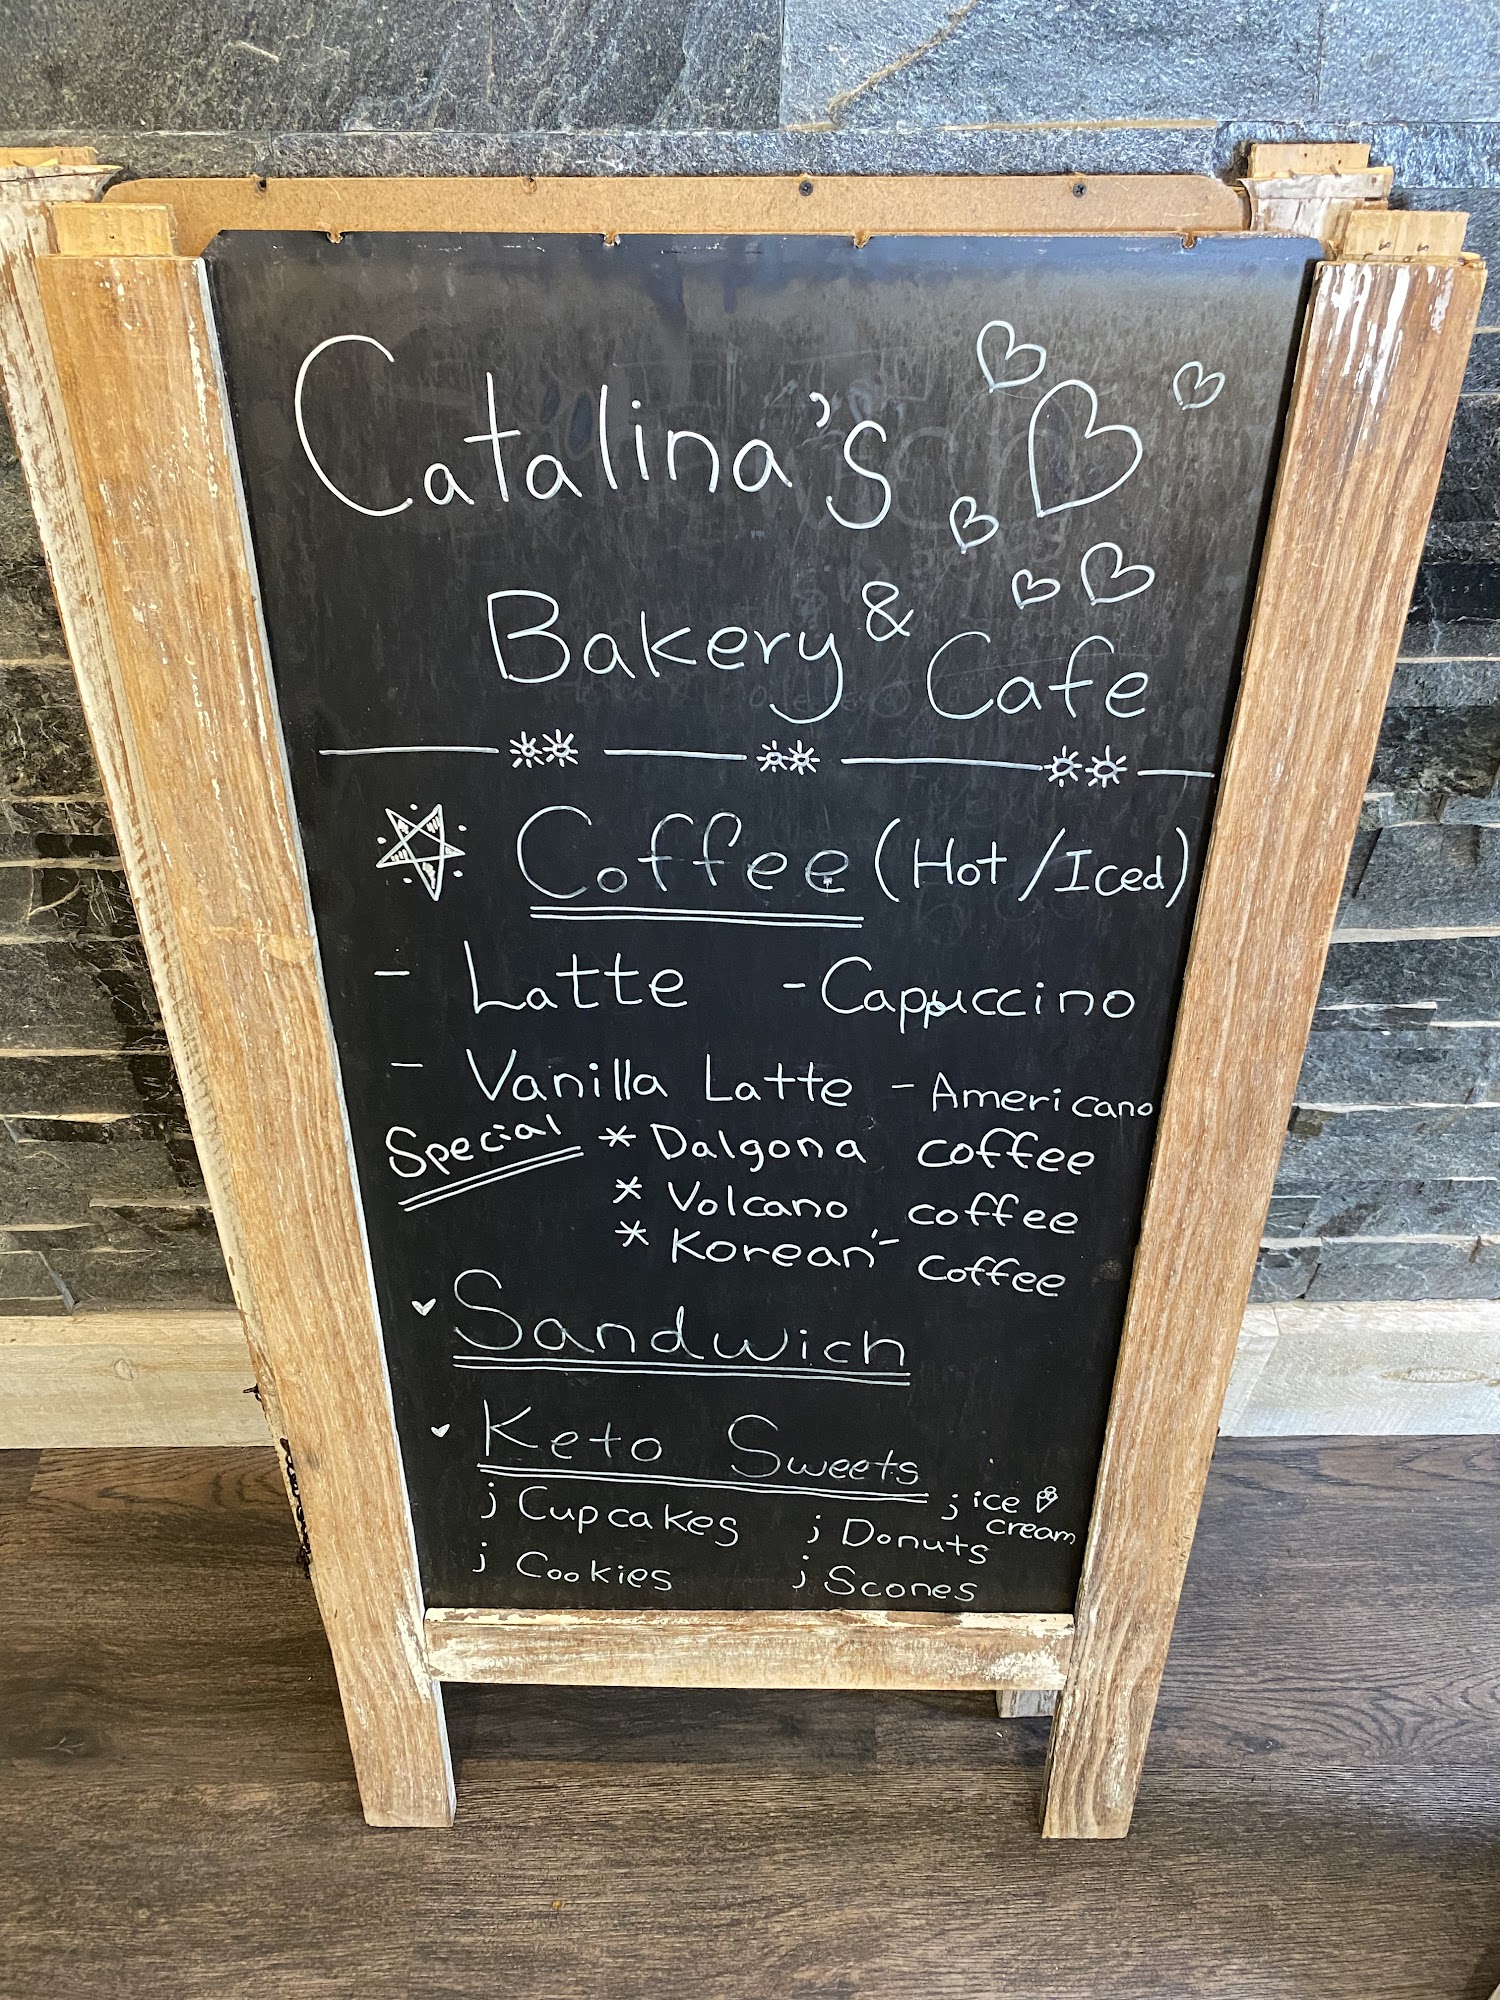 Catalina's
Bakery & Cafe
Coffee (Hot/Iced)
- Latte - Cappuccino
- Vanilla Latte - Americano
Special * Dalgona coffee
* Volcano coffee
* Korean coffee
Sandwich
Keto Sweets
; Cupcakes ; Donuts ; ice cream
; Cookies ; Scones